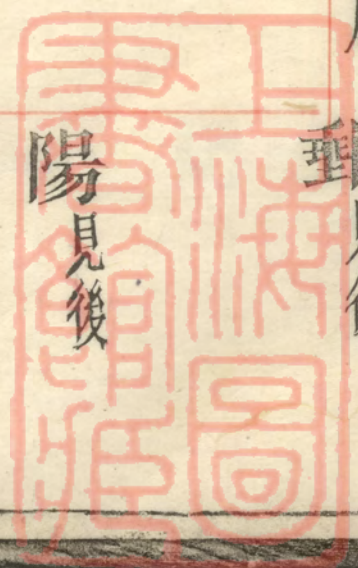 郵
陽見後
上海圖
書館藏